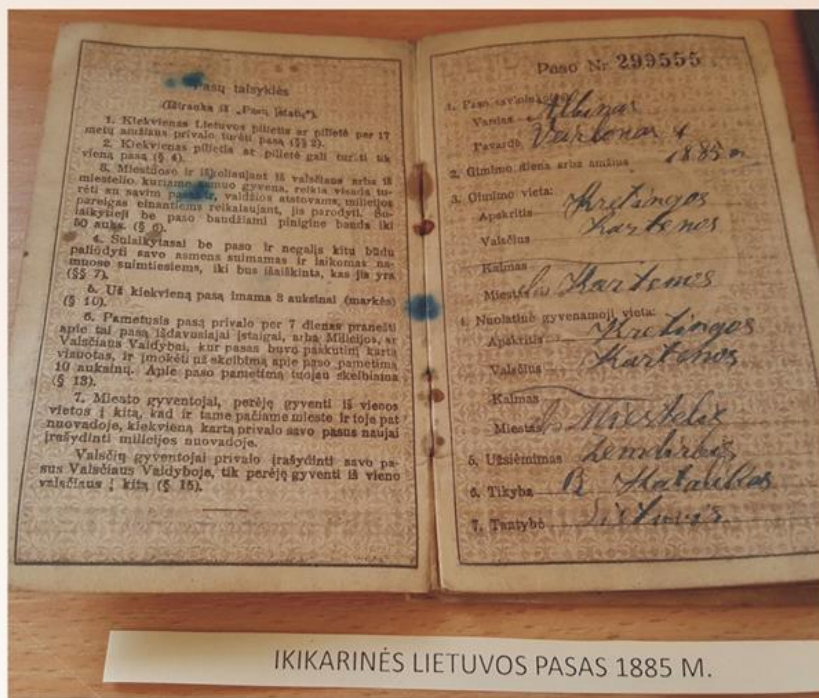 Pasų taisyklės
(Ištrauka iš „Pasų įstatų").
1. Kiekvienas Lietuvos pilietis ar pilietė per 17
metų amžiaus privalo turėti pasą (§§ 2).
2. Kiekvienas pilietis at pilietė gali turėti tik
vieną pasą (§ 4).
3. Miestuose ir iškeliaujant iš valsčiaus arba iš
miestelio, kuriame asmuo gyvena, reikia visada tu-
rėti su savim pasą ir, valdžios atstovams, milicijos
pareigas einantiems reikalaujant, jis parodyti. Su-
laikytieji be paso baudžiami pinigine bauda iki
50 auks. (§ 6).
4. Sulaikytasai be paso ir negalįs kitu būdu
paliudyti savo asmens suimamas ir laikomas na-
muose suimtiesiems, iki bus išaiškinta, kas jis yra
(§§ 7).
5. Už kiekvieną pasą imama 3 auksinai (markės)
(§ 10).
6. Pametusis pasą privalo per 7 dienas pranešti
apie tai pasą išdavusiajai įstaigai, arba Milicijos, ar
Valsčiaus Valdybai, kur pasas buvo paskutinį kartą
vizuotas, ir įmokėti už skelbimą apie paso pametimą
10 auksinų. Apie paso pametimą tuojau skelbiama
(§ 13).
7. Miesto gyventojai, perėję gyventi iš vienos
vietos į kitą, kad ir tame pačiame mieste ir toje pat
nuovadoje, kiekvieną kartą privalo savo pasus naujai
įrašydinti milicijos nuovadoje.
Valsčių gyventojai privalo įrašydinti savo pa-
sus Valsčiaus Valdyboje, tik perėję gyventi iš vieno
valsčiaus į kitą (§ 15).
Paso Nr 299555
1. Paso savininko
Vardas Albinas
Pavardė
2. Gimimo diena arba amžius 1885 m
3. Gimimo vieta:
Apskritis Kretingos
Valsčius Kartenos
Kaimas
Miestas Kartenos
4. Nuolatinė gyvenamoji vieta:
Apskritis Kretingos
Valsčius Kartenos
Kaimas
Miestas Miestelis
5. Užsiėmimas žemdirbys
6. Tikyba R Katalikas
7. Tautybė Lietuvis
IKIKARINĖS LIETUVOS PASAS 1885 M.